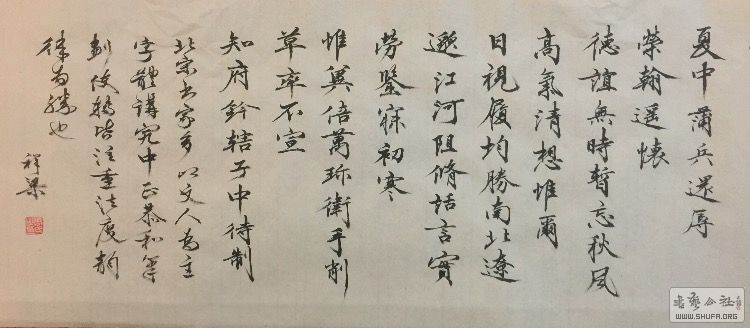 夏中蒲兵還辱
榮翰遥懷
德誼無時暫忘秋風
高氣清想惟爾
日視履均勝南北遼
邈江河阻脩話言實
勞鑒寐初寒
惟冀倍萬珎衛手削
草率不宣
知府鈐轄子中待制
北宋书家多以文人為主
字體講究中正恭和筆
劃使轉皆注重法度韵
律为勝也
祥梁
书艺公社
WWW.SHUFA.ORG